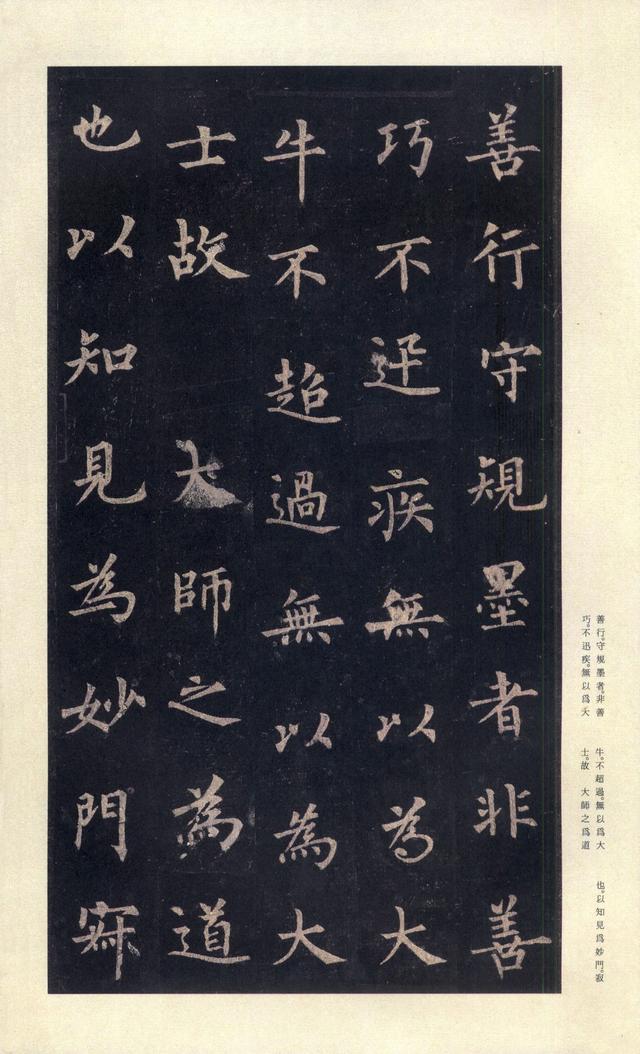 善行守規墨者非善
巧不迅疾無以為大
牛不超過無以為大
士故　大師之為道
也以知見為妙門寂
善行。守規墨者。非善
巧。不迅疾。無以爲大
牛。不超過。無以爲大
士。故　大師之爲道
也。以知見爲妙門。寂